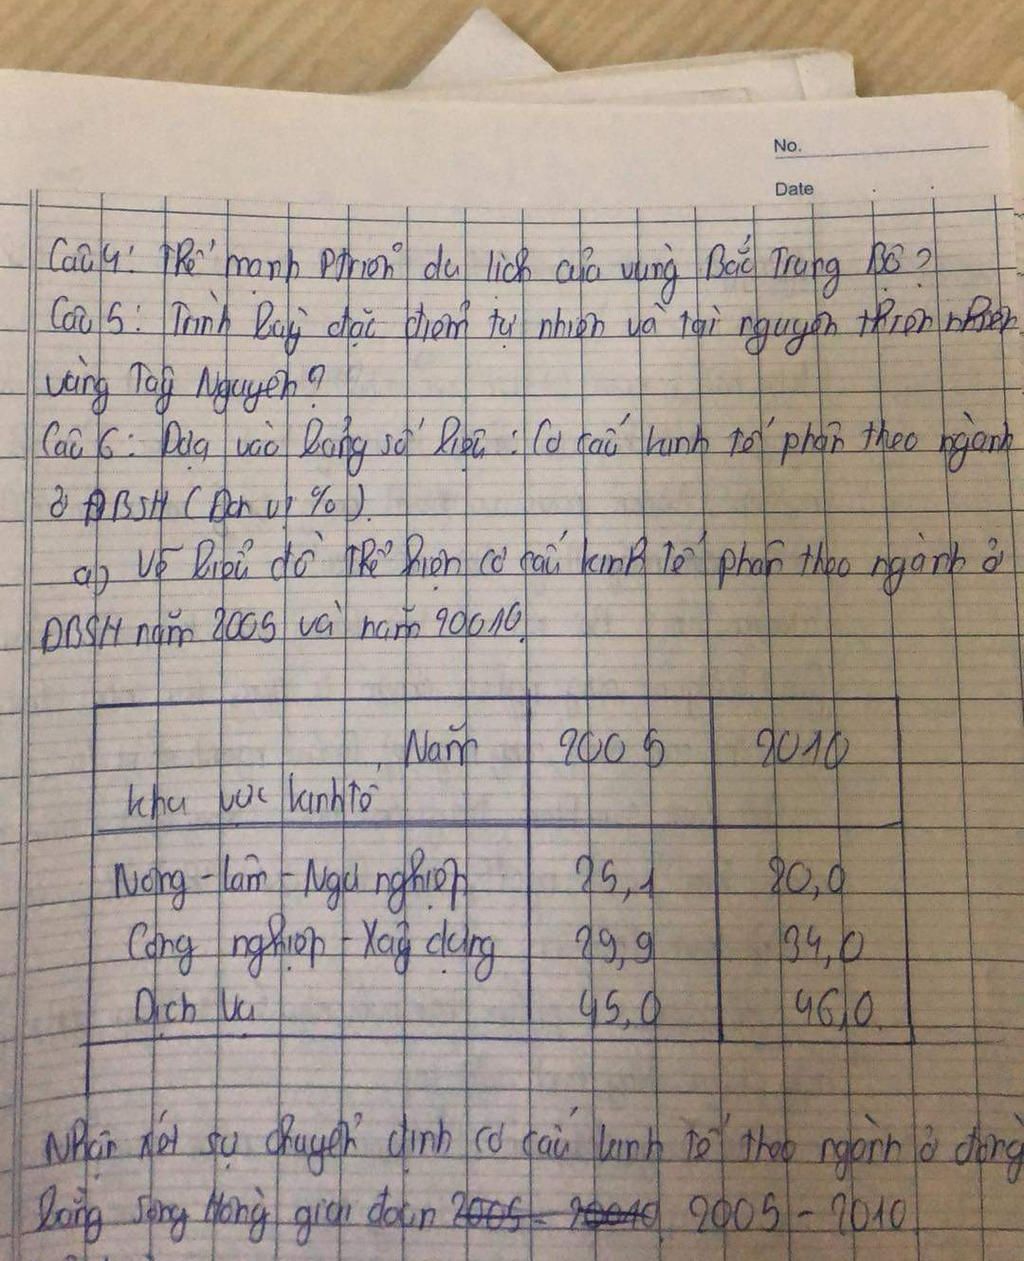 No.
Date
Câu 4: Thế mạnh ptriển du lịch của vùng Bắc Trung Bộ?
Câu 5: Trình bày đặc điểm tự nhiên và tài nguyên thiên nhiên
vùng Tây Nguyên?
Câu 6: Dựa vào bảng số liệu: Cơ cấu kinh tế phân theo ngành
ở ĐBSH (Đơn vị %).
a) Vẽ biểu đồ thể hiện cơ cấu kinh tế phân theo ngành ở
ĐBSH năm 2005 và năm 20010.
Năm 2005 2010
Khu vực kinh tế
Nông - Lâm - Ngư nghiệp 25,1 20,0
Công nghiệp - Xây dựng 29,9 34,0
Dịch vụ 45,0 46,0
Nhận xét sự chuyển dịnh cơ cấu kinh tế theo ngành ở đồng
bằng sông Hồng giai đoạn 2005 - 20010 2005 - 2010